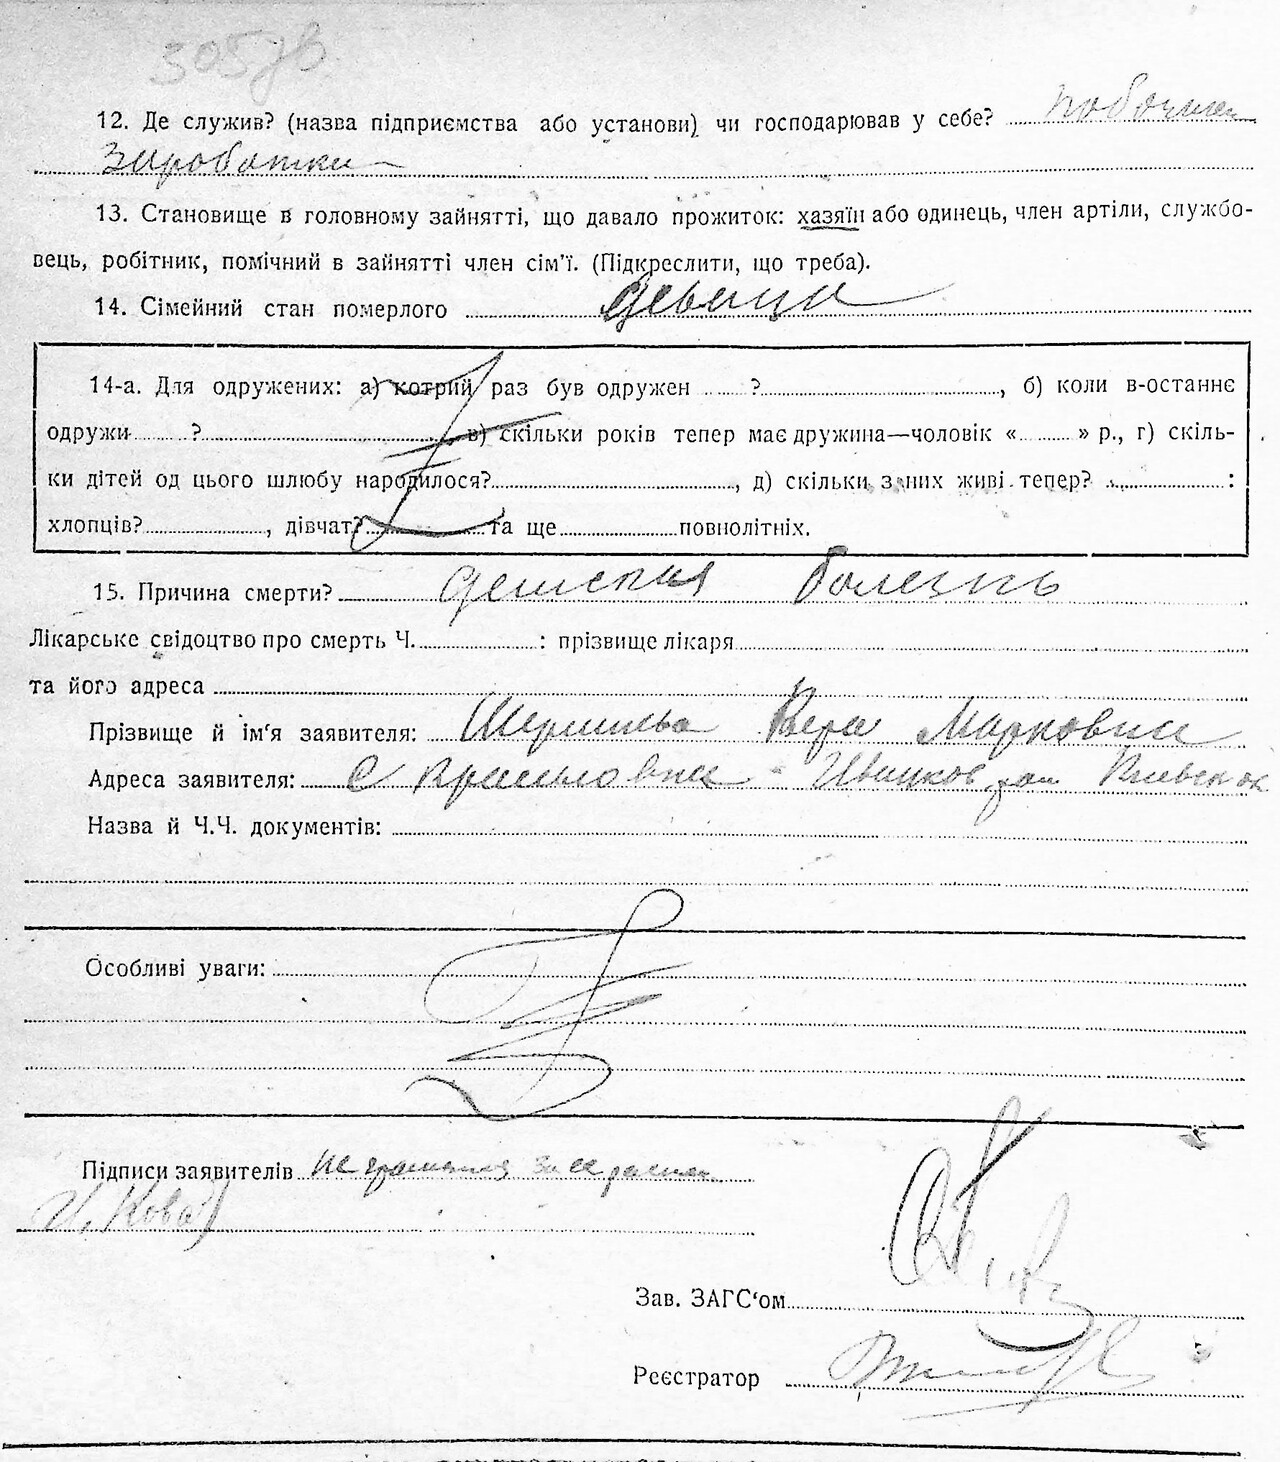 305
12. Де служив? (назва підприємства або установи) чи господарював у себе? побочные
заработки
13. Становище в головному зайнятті, що давало прожиток: хазяїн або одинець, член артіли, службо-
вець, робітник, помічний в зайнятті член сім'ї. (Підкреслити, що треба).
14. Сімейний стан померлого девица
14-а. Для одружених: а) котрий раз був одружен ?, б) коли в-останнє
одружи ?, в) скільки років тепер має дружина—чоловік « » р., г) скіль-
ки дітей од цього шлюбу народилося?, д) скільки з них живі тепер? :
хлопців?, дівчат? та ще повнолітніх.
15. Причина смерти? Детская болезнь
Лікарське свідоцтво про смерть Ч. : прізвище лікаря
та його адреса
Прізвище й ім'я заявителя: Вера Марковна
Адреса заявителя: с
Назва й Ч.Ч. документів:
Особливі уваги:
Підписи заявителів за
Зав. ЗАГС'ом
Реєстратор